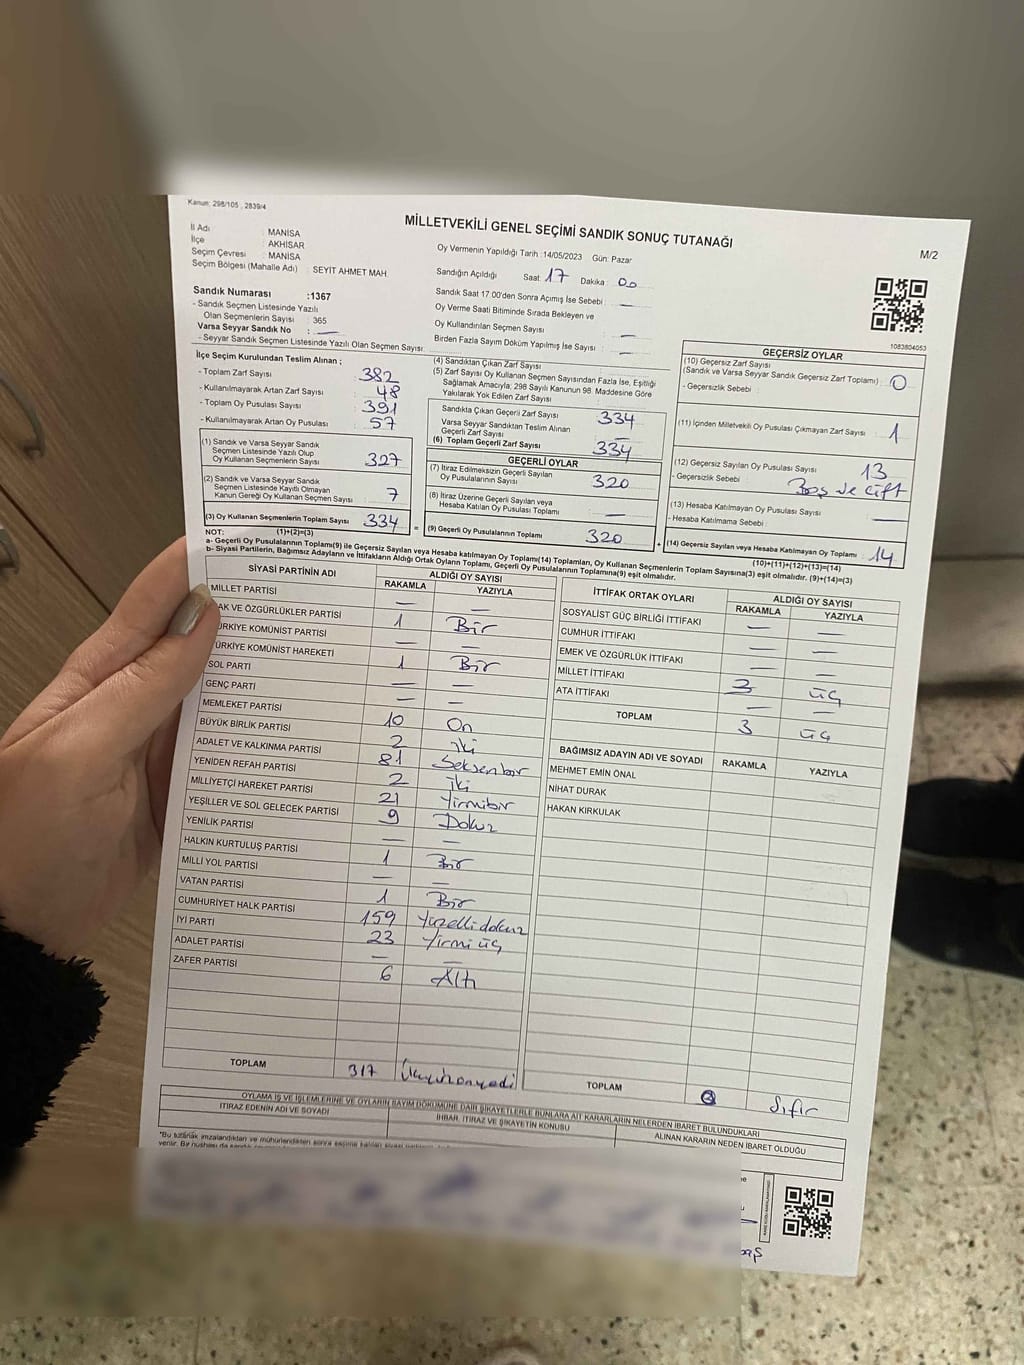 Kanun: 298/105 , 2839/4
MİLLETVEKİLİ GENEL SEÇİMİ SANDIK SONUÇ TUTANAĞI
M/2
İl Adı : MANİSA
İlçe : AKHİSAR
Seçim Çevresi : MANİSA
Seçim Bölgesi (Mahalle Adı) : SEYİT AHMET MAH.
Oy Vermenin Yapıldığı Tarih :14/05/2023 Gün: Pazar
Sandığın Açıldığı Saat: 17 Dakika: 00
Sandık Saat 17 00'den Sonra Açımış İse Sebebi : —
Oy Verme Saati Bitiminde Sırada Bekleyen ve
Oy Kullandırılan Seçmen Sayısı : —
Birden Fazla Sayım Döküm Yapılmış İse Sayısı : —
Sandık Numarası :1367
- Sandık Seçmen Listesinde Yazılı
Olan Seçmenlerin Sayısı : 365
Varsa Seyyar Sandık No : —
- Seyyar Sandık Seçmen Listesinde Yazılı Olan Seçmen Sayısı
1083804053
İlçe Seçim Kurulundan Teslim Alınan ;
- Toplam Zarf Sayısı 382
- Kullanılmayarak Artan Zarf Sayısı 48
- Toplam Oy Pusulası Sayısı 391
- Kullanılmayarak Artan Oy Pusulası 57
(1) Sandık ve Varsa Seyyar Sandık
Seçmen Listesinde Yazılı Olup
Oy Kullanan Seçmenlerin Sayısı 327
(2) Sandık ve Varsa Seyyar Sandık
Seçmen Listesinde Kayıtlı Olmayan
Kanun Gereği Oy Kullanan Seçmen Sayısı 7
(3) Oy Kullanan Seçmenlerin Toplam Sayısı 334
(1)+(2)=(3)
(4) Sandıktan Çıkan Zarf Sayısı
(5) Zarf Sayısı Oy Kullanan Seçmen Sayısından Fazla İse, Eşitliği
Sağlamak Amacıyla; 298 Sayılı Kanunun 98. Maddesine Göre
Yakılarak Yok Edilen Zarf Sayısı
Sandıkta Çıkan Geçerli Zarf Sayısı 334
Varsa Seyyar Sandıktan Teslim Alınan
Geçerli Zarf Sayısı —
(6) Toplam Geçerli Zarf Sayısı 334
GEÇERLİ OYLAR
(7) İtiraz Edilmeksizin Geçerli Sayılan
Oy Pusulalarının Sayısı 320
(8) İtiraz Üzerine Geçerli Sayılan veya
Hesaba Katılan Oy Pusulası Toplamı —
= (9) Geçerli Oy Pusulalarının Toplamı 320
GEÇERSİZ OYLAR
(10) Geçersiz Zarf Sayısı
(Sandık ve Varsa Seyyar Sandık Geçersiz Zarf Toplamı) 0
- Geçersizlik Sebebi :
(11) İçinden Milletvekili Oy Pusulası Çıkmayan Zarf Sayısı 1
(12) Geçersiz Sayılan Oy Pusulası Sayısı 13
- Geçersizlik Sebebi : Boş ve Çift
(13) Hesaba Katılmayan Oy Pusulası Sayısı —
- Hesaba Katılmama Sebebi :
+ (14) Geçersiz Sayılan veya Hesaba Katılmayan Oy Toplamı 14
(10)+(11)+(12)+(13)=(14)
NOT:
a- Geçerli Oy Pusulalarının Toplamı(9) ile Geçersiz Sayılan veya Hesaba katılmayan Oy Toplamı(14) Toplamları, Oy Kullanan Seçmenlerin Toplam Sayısına(3) eşit olmalıdır. (9)+(14)=(3)
b- Siyasi Partilerin, Bağımsız Adayların ve İttifakların Aldığı Ortak Oyların Toplamı, Geçerli Oy Pusulalarının Toplamına(9) eşit olmalıdır.
SİYASİ PARTİNİN ADI ALDIĞI OY SAYISI
RAKAMLA YAZIYLA
MİLLET PARTİSİ — —
AK VE ÖZGÜRLÜKLER PARTİSİ 1 Bir
ÜRKİYE KOMÜNİST PARTİSİ — —
ÜRKİYE KOMÜNİST HAREKETİ 1 Bir
SOL PARTİ — —
GENÇ PARTİ — —
MEMLEKET PARTİSİ 10 On
BÜYÜK BİRLİK PARTİSİ 2 iki
ADALET VE KALKINMA PARTİSİ 81 Seksenbir
YENİDEN REFAH PARTİSİ 2 iki
MİLLİYETÇİ HAREKET PARTİSİ 21 Yirmibir
YEŞİLLER VE SOL GELECEK PARTİSİ 9 Dokuz
YENİLİK PARTİSİ — —
HALKIN KURTULUŞ PARTİSİ 1 Bir
MİLLİ YOL PARTİSİ — —
VATAN PARTİSİ 1 Bir
CUMHURİYET HALK PARTİSİ 159 Yüzellidokuz
İYİ PARTİ 23 Yirmi üç
ADALET PARTİSİ — —
ZAFER PARTİSİ 6 Altı
TOPLAM 317 Üçyüzonyedi
İTTİFAK ORTAK OYLARI ALDIĞI OY SAYISI
RAKAMLA YAZIYLA
SOSYALİST GÜÇ BİRLİĞİ İTTİFAKI — —
CUMHUR İTTİFAKI — —
EMEK VE ÖZGÜRLÜK İTTİFAKI — —
MİLLET İTTİFAKI 3 üç
ATA İTTİFAKI — —
TOPLAM 3 üç
BAĞIMSIZ ADAYIN ADI VE SOYADI RAKAMLA YAZIYLA
MEHMET EMİN ÖNAL
NİHAT DURAK
HAKAN KIRKULAK
TOPLAM Sıfır
OYLAMA İŞ VE İŞLEMLERİNE VE OYLARIN SAYIM DÖKÜMÜNE DAİR ŞİKAYETLERLE BUNLARA AİT KARARLARIN NELERDEN İBARET BULUNDUKLARI
İTİRAZ EDENİN ADI VE SOYADI
İHBAR, İTİRAZ VE ŞİKAYETİN KONUSU
ALINAN KARARIN NEDEN İBARET OLDUĞU
"Bu tutanak imzalandıktan ve mühürlendikten sonra